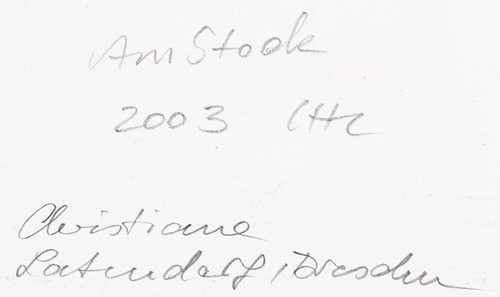 Am Stock
2003 CHL
Christiane
Latendorf, Dresden